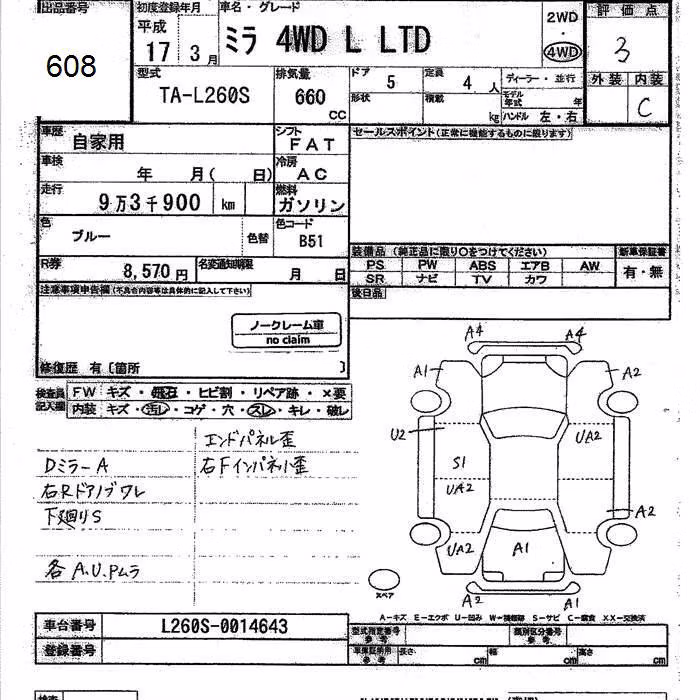 出品番号
608
初度登録年月
平成
17 3月
車名・グレード
ミラ 4WD L LTD
2WD
・
4WD
評価点
3
外装 内装
C
型式
TA-L260S
排気量
660
CC
ドア
5
定員
4 人
ディーラー・並行
形状
積載
kg
モデル年式
年
ハンドル 左・右
車歴
自家用
シフト
FAT
車検
年 月( 日)
冷房
AC
走行
9万3千900 km
燃料
ガソリン
色
ブルー
色替
色コード
B51
R券
8,570円
名変通知期限
月 日
セールスポイント(正常に機能するものに限ります)
装備品 (純正品に限り〇をつけてください)
新車保証書
PS PW ABS エアB AW
SR ナビ TV カワ
有・無
後日品
注意事項申告欄(不具合内容等は具体的に記入して下さい)
ノークレーム車
no claim
修復歴 有〔箇所 〕
検査員記入欄
FW キズ・飛石・ヒビ割・リペア跡・×要
内装 キズ・汚レ・コゲ・穴・スレ・キレ・破レ
エンドパネル歪
DミラーA
右Fインパネ小歪
右Rドアノブワレ
下廻りS
各A.U.Pムラ
A4 A4
A1 A2
U2 UA2
S1
UA2
A2
UA2 A1
A2 A1
スペア
A−キズ E−エクボ U−凹み W−補修跡 S−サビ C−腐食 XX−交換済
車台番号
L260S-0014643
登録番号
型式指定番号
参考
類別区分番号
参考
車庫証明用
参考
長さ cm
幅 cm
高さ cm